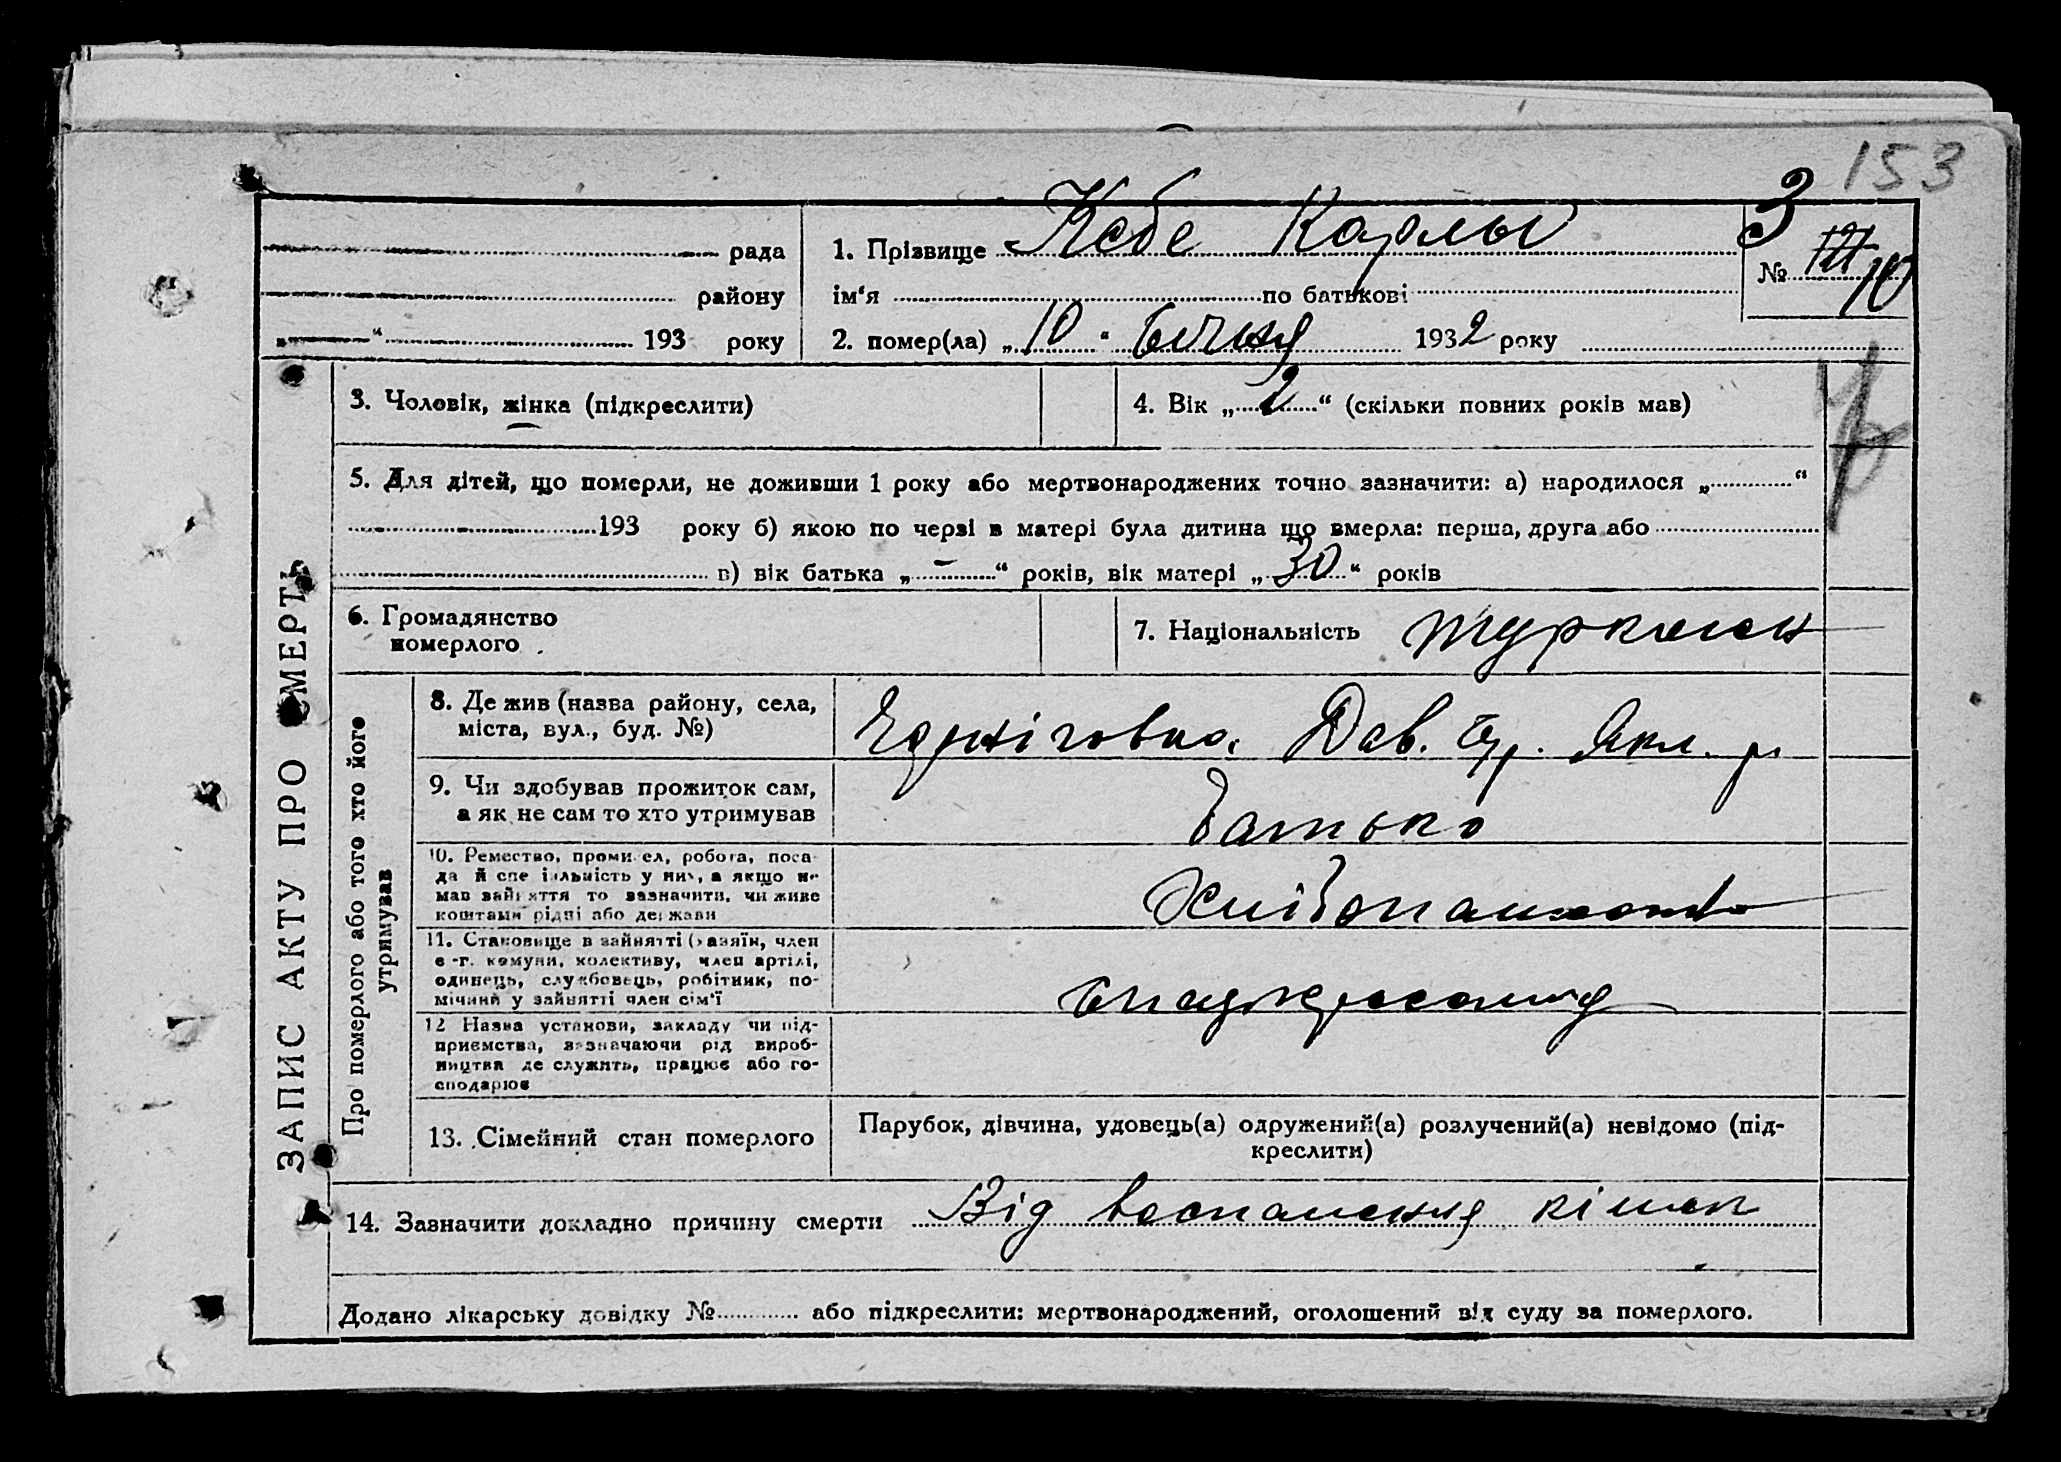 153
3
рада 1. Прізвище Кебе Карлы
№ 10
району ім'я по батькові
„ “ 193 року 2. помер(ла) „10“ січня 1932 року
3. Чоловік, жінка (підкреслити) 4. Вік „2“ (скільки повних років мав)
5. Для дітей, що померли, не доживши 1 року або мертвонароджених точно зазначити: а) народилося „ “
193 року б) якою по черзі в матері була дитина що вмерла: перша, друга або
в) вік батька „-“ років, вік матері „30“ років
6. Громадянство
померлого
7. Національність туркмен
ЗАПИС АКТУ ПРО СМЕРТЬ
Про померлого або того хто його
утримував
8. Де жив (назва району, села,
міста, вул., буд. №)
Дав. р.
9. Чи здобував прожиток сам,
а як не сам то хто утримував
батько
10. Ремество, промисел, робота, поса-
да й спеціальність у них, а якщо не
мав зайняття то зазначити, чи живе
коштами рідні або держави
11. Становище в зайнятті (хазяїн, член
с.-г. комуни, колективу, член артілі,
одинець, службовець, робітник, по-
мічний у зайнятті член сім'ї
12 Назва установи, закладу чи під-
приємства, зазначаючи рід вироб-
ництва де служить, працює або го-
сподарює
13. Сімейний стан померлого
Парубок, дівчина, удовець(а) одружений(а) розлучений(а) невідомо (під-
креслити)
14. Зазначити докладно причину смерти Від воспаления кішек
Додано лікарську довідку № або підкреслити: мертвонароджений, оголошений від суду за померлого.